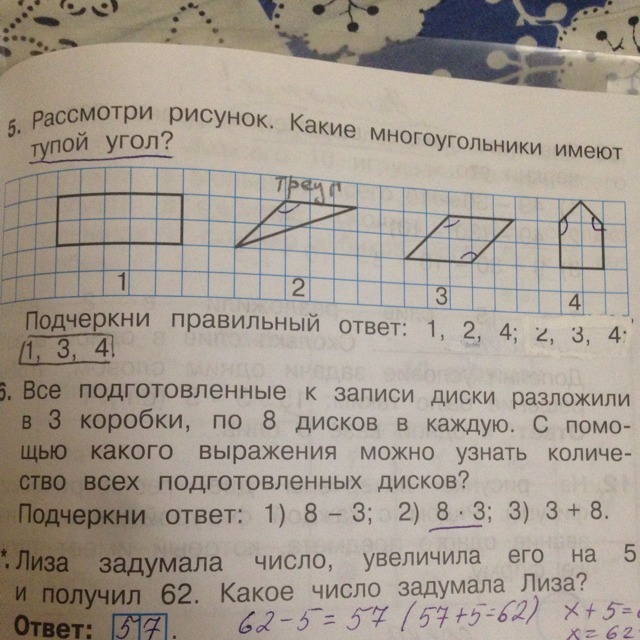 5. Рассмотри рисунок. Какие многоугольники имеют
тупой угол?
треуг
1
2
3
4
Подчеркни правильный ответ: 1, 2, 4; 2, 3, 4;
1, 3, 4.
6. Все подготовленные к записи диски разложили
в 3 коробки, по 8 дисков в каждую. С помо-
щью какого выражения можно узнать количе-
ство всех подготовленных дисков?
Подчеркни ответ: 1) 8 - 3; 2) 8 · 3; 3) 3 + 8.
*. Лиза задумала число, увеличила его на 5
и получил 62. Какое число задумала Лиза?
Ответ: 57. 62-5=57 (57+5=62) x+5=6
x=62